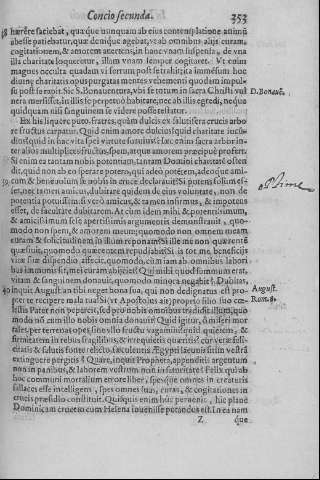 Concio secunda. 353
hærére faciebat, quæque nunquam ab eius contemplatione animū
abesse patiebatur, quæ denique agebat, vt ab omnibus alijs curam,
cogitationem, & amorem auertens, in hanc vnam suspensa, de vna
illa charitate loqueretur, illam vnam semper cogitaret. Vt enim
magnes occulta quadam vi ferrum post se trahit, ita immēsum hoc
diuinæ charitatis opus purgatas mentes vehementi quodam impul-
su post se rapit. Sic S. Bonauentura, vbi se totum in sacra Christi vul
nera mersisset, in illis se perpetuò habitare, nec ab illis egredi, neque
quidquam nisi sanguinem se videre posse testatur.
D. Bonauē.
Ex his liquere puto, fratres, quàm dulces ex salutifera crucis arbo
re fructus carpatur. Quid enim amore dulcius? quid charitate iucū-
dius? quid in hac vita spei virtute suauius? hæc enim sacra arbor in-
ter alios multiplices fructus, spem, atque amorem præcipuè profert.
Si enim ea tantam nobis potentiam, tantam Domini charitatē osten
dit, quid non ab eo sperare potero, qui adeò potētem, adeoque ami-
cum & beneuolum se nobis in cruce declarauit? Si potens solùm es-
set, nec tamen amicus, dubitare quidem de eius voluntate, non de
potentia potuissem: si verò amicus, & tamen infirmus, & impotens
esset, de facultate dubitarem. At cùm idem mihi & potentissimum,
& amicissimum se se apertissimis argumentis demonstrauit, quo-
modo non spem, & amorem meum: quomodo non omnem meam
curam & solicitudinem in illum reponam? Si ille me non quærentē
quæsiuit, quomodo quærentem repudiabit? Si is tot me beneficijs
viuæ suæ dispendio affecit, quomodo, cùm iam ab omnibus labori
bus immunis sit, mei curam abijciet? Qui mihi quod summum erat,
vitam & sanguinem donauit, quomodo minora negabit? Dubitas,
inquit August. an tibi reget bona sua, qui non dedignatus est pro-
August.
pter te recipere mala tua? Si (vt Apostolus ait) proprio filio suo cæ-
Rom. 8.
lestis Pater non pepercit, sed pro nobis omnibus tradidit illum, quo
modo nō cum illo nobis omnia donauit? Quid igitur, ô miseri mor
tales, per terrenas opes, siue vllo fructu vagamini? quid quietem, &
firmitatem in rebus fragilibus, & irrequietis quæritis? cur veræ feli-
citatis & salutis fonte relicto,
extinguere pergitis? Quare, inquit Propheta, appenditis argentum
non in panibus, & laborem vestrum non in saturitate? Felix qui ab
hoc communi mortalium errore liber, spesque omnes in creaturis
fallaces esse intelligens, spes omnes suas, curas, & cogitationes in
crucis præsidio constituit. Quisquis enim huc peruenit, hic planè
Dominicam crucem cum Helena inuenisse putandus est. In ea nam
Z que